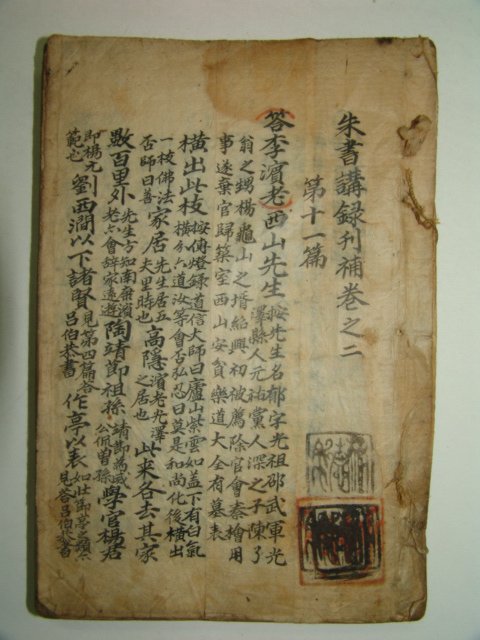 朱書講録刊補卷之二
第十一篇
答李濱老西山先生按先生名郁字光祖邵武軍光澤縣人元祐黨人深之子陳了
翁之甥楊龜山之壻紹興初被薦除官會秦檜用
事遂棄官歸築室西山安貧樂道大全有墓表
橫出此枝按傳燈錄道信大師曰廬山紫雲如盖下有白氣
橫分六道汝等會否弘忍曰莫是和尚化後橫出
一枝佛法否師曰善家居先生居五夫里時也高隱濱老光澤之居也此来各去其家
數百里外先生方知南康濱老亦會辭家遠遊陶靖節祖孫靖節爲威公侃曾孫學官楊君
即楊元範也劉西澗以下諸賢見第四篇答呂伯恭書作亭以表如壯節亭之類亦見答呂伯恭書